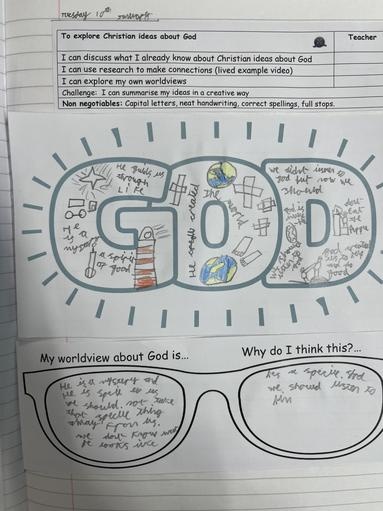 Tuesday 10th
To explore Christian ideas about God
Teacher
I can discuss what I already know about Christian ideas about God
I can use research to make connections (lived example video)
I can explore my own worldviews
Challenge: I can summarise my ideas in a creative way
Non negotiables: Capital letters, neat handwriting, correct spellings, full stops.
GOD
He guids us
through
Life
He
is a
a spirit
of good
He created
the world
we didnt lisen to
god but now we
should
god is
dont
eat
the
god
us to
and do
good
My worldview about God is...
He is a mystery and
He is to us
we should not take
that thing
away from us.
we dont know what
he looks like
Why do I think this?...
a and
we should lisen to
him